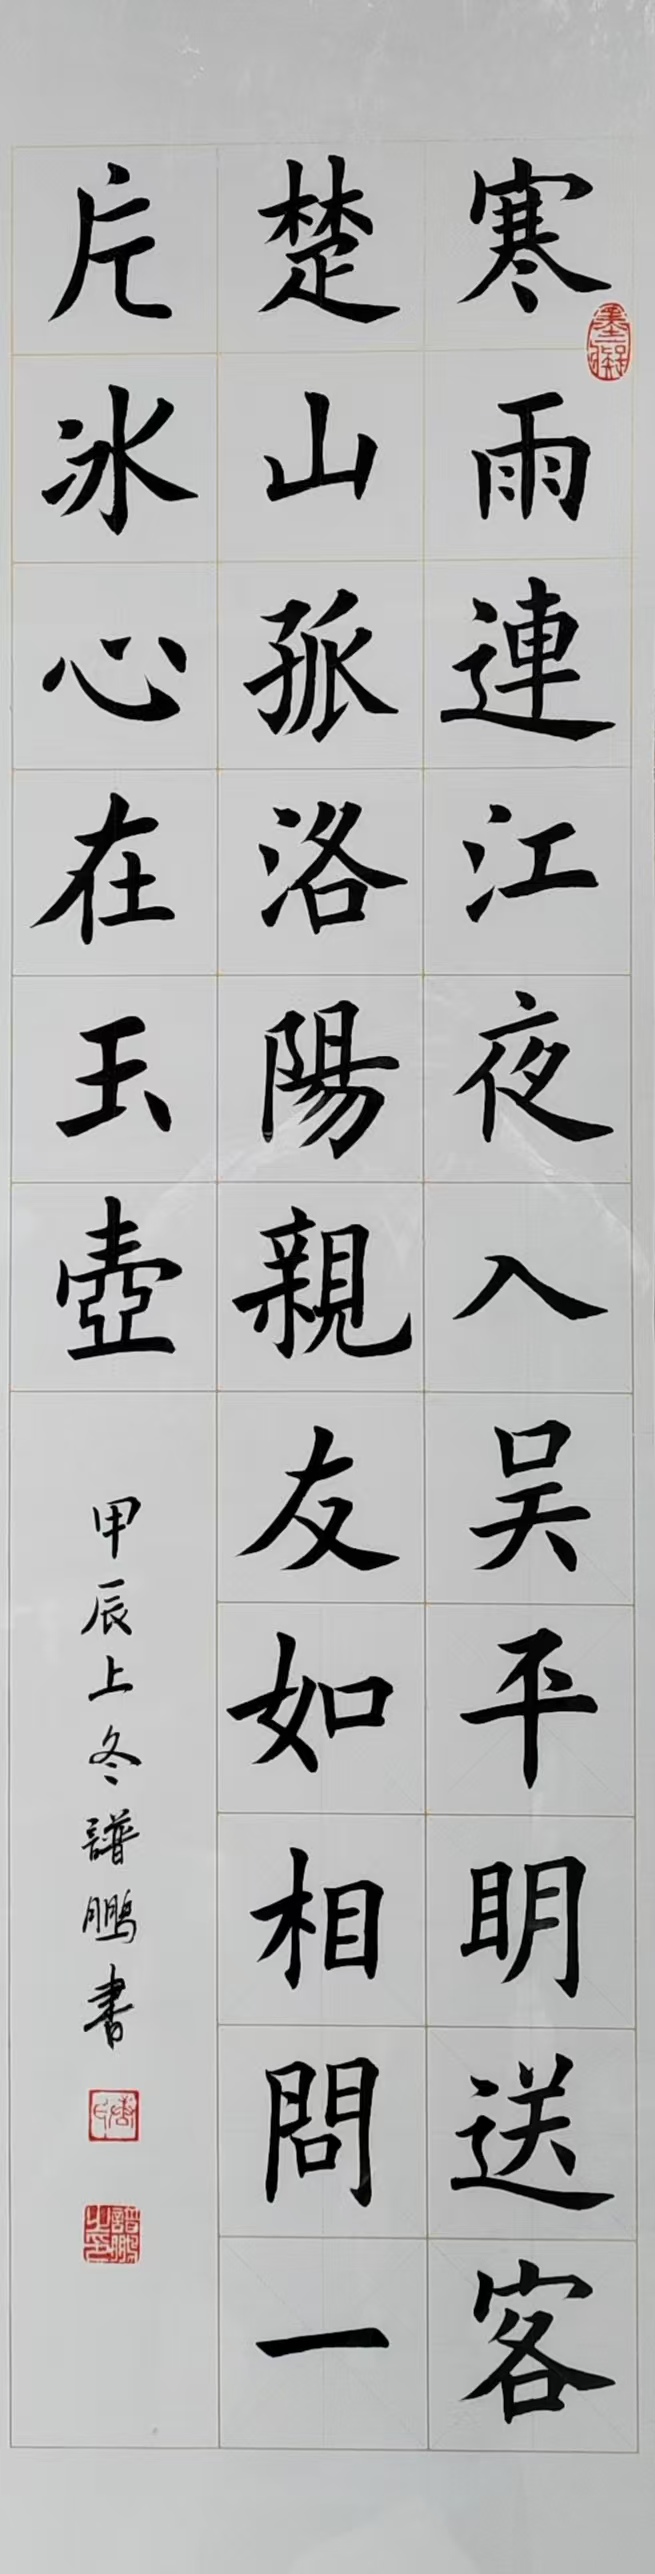 寒雨連江夜入吴平明送客
楚山孤洛陽親友如相問一
片冰心在玉壺
甲辰上冬譜鵬書
譜鵬之印